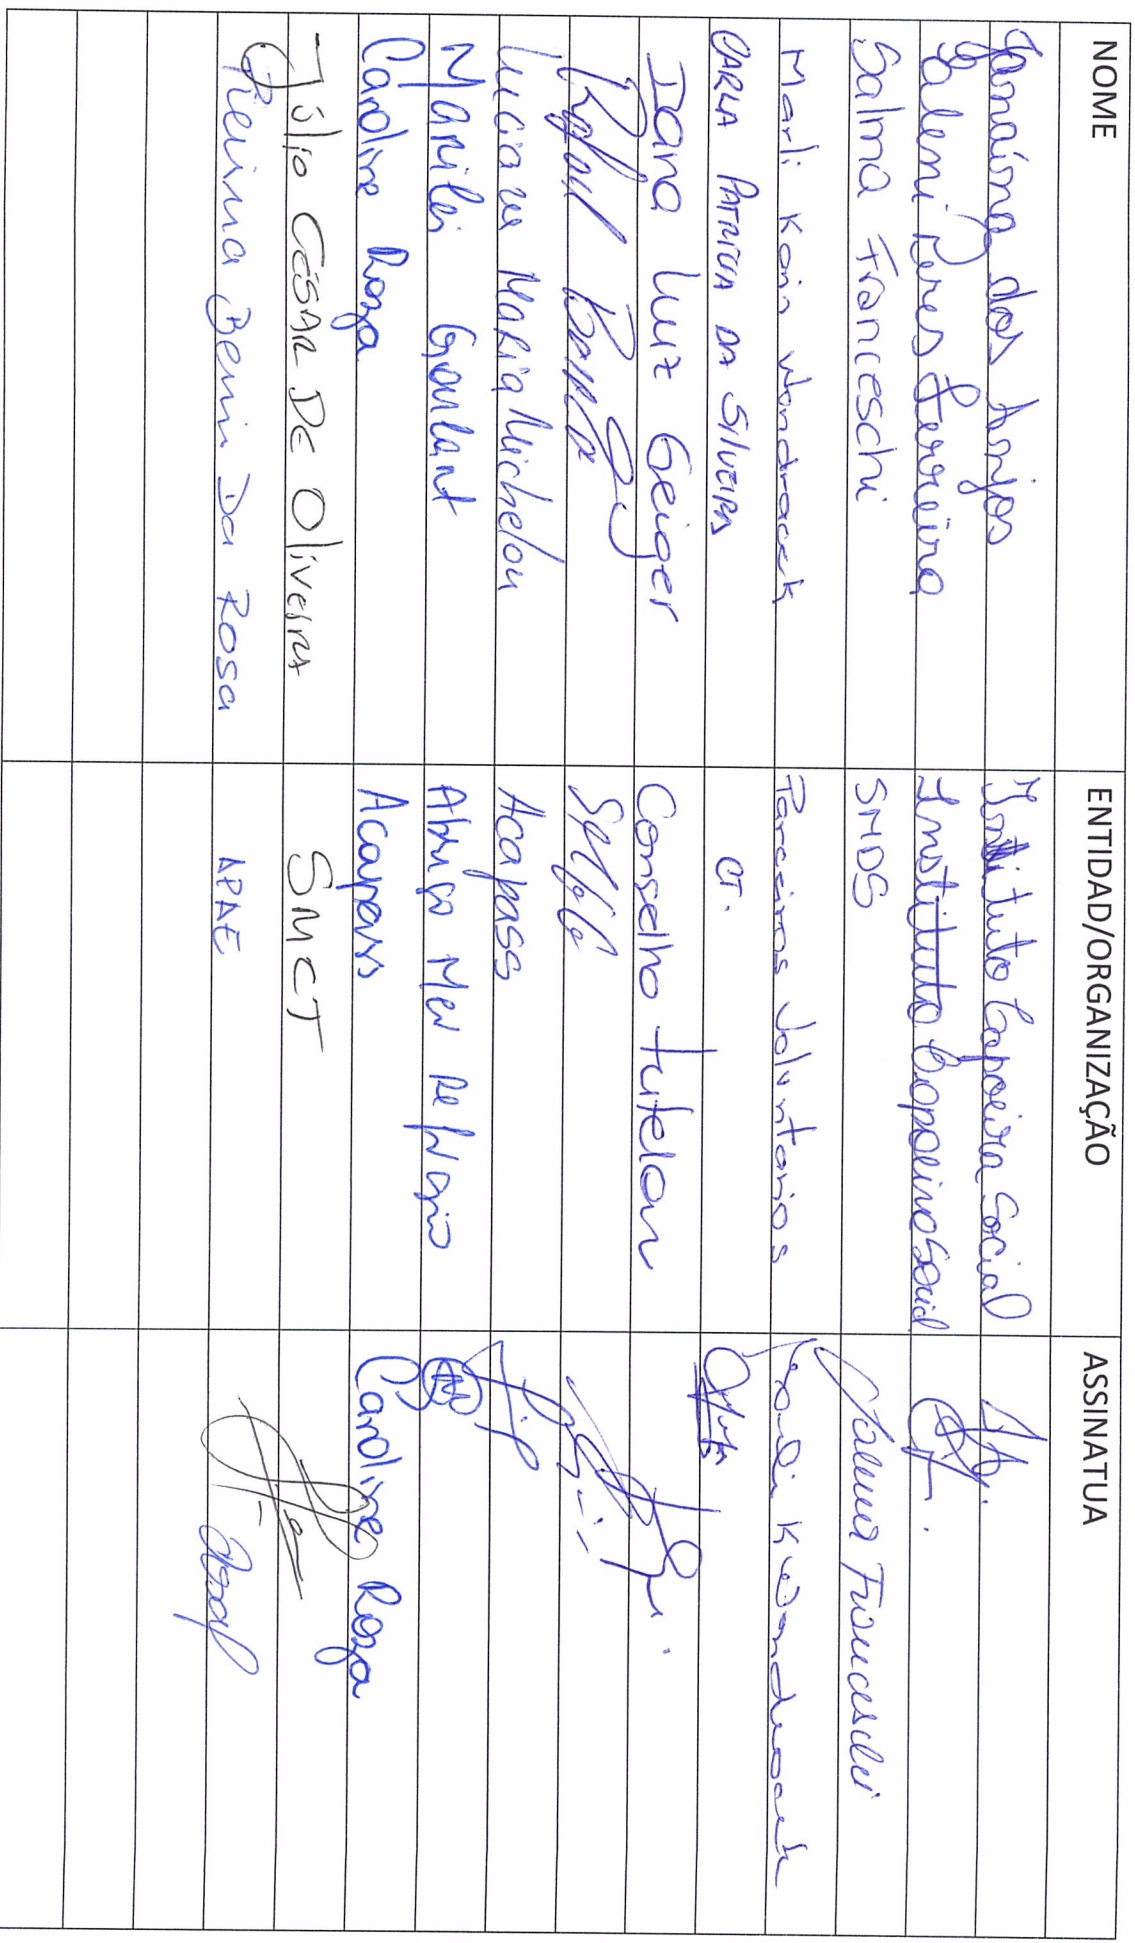 NOME ENTIDAD/ORGANIZAÇÃO ASSINATUA
Janaína dos Anjos Instituto Capoeira Social
Peres Ferreira Instituto Capoeira Social
Salma Franceschi SMDS Salma Franceschi
Marli Karin Wondracek Parceiros Voluntarios Marli K Wondracek
CARLA PATRICIA DA SILVEIRA CT.
Dana Luiz Geiger Conselho tutelar
Rafael
Luciane Maria Michelon Acapass
Marilei Goulart Abrigo Meu Refúgio
Caroline Roza Acapass Caroline Roza
Júlio CÉSAR DE Oliveira SMCT
Pierina Berni Da Rosa APAE